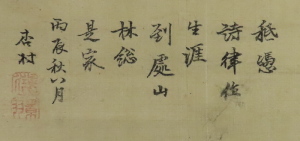 秖憑
詩律位
生涯
到處山
林総
是家
丙辰秋八月
杏村